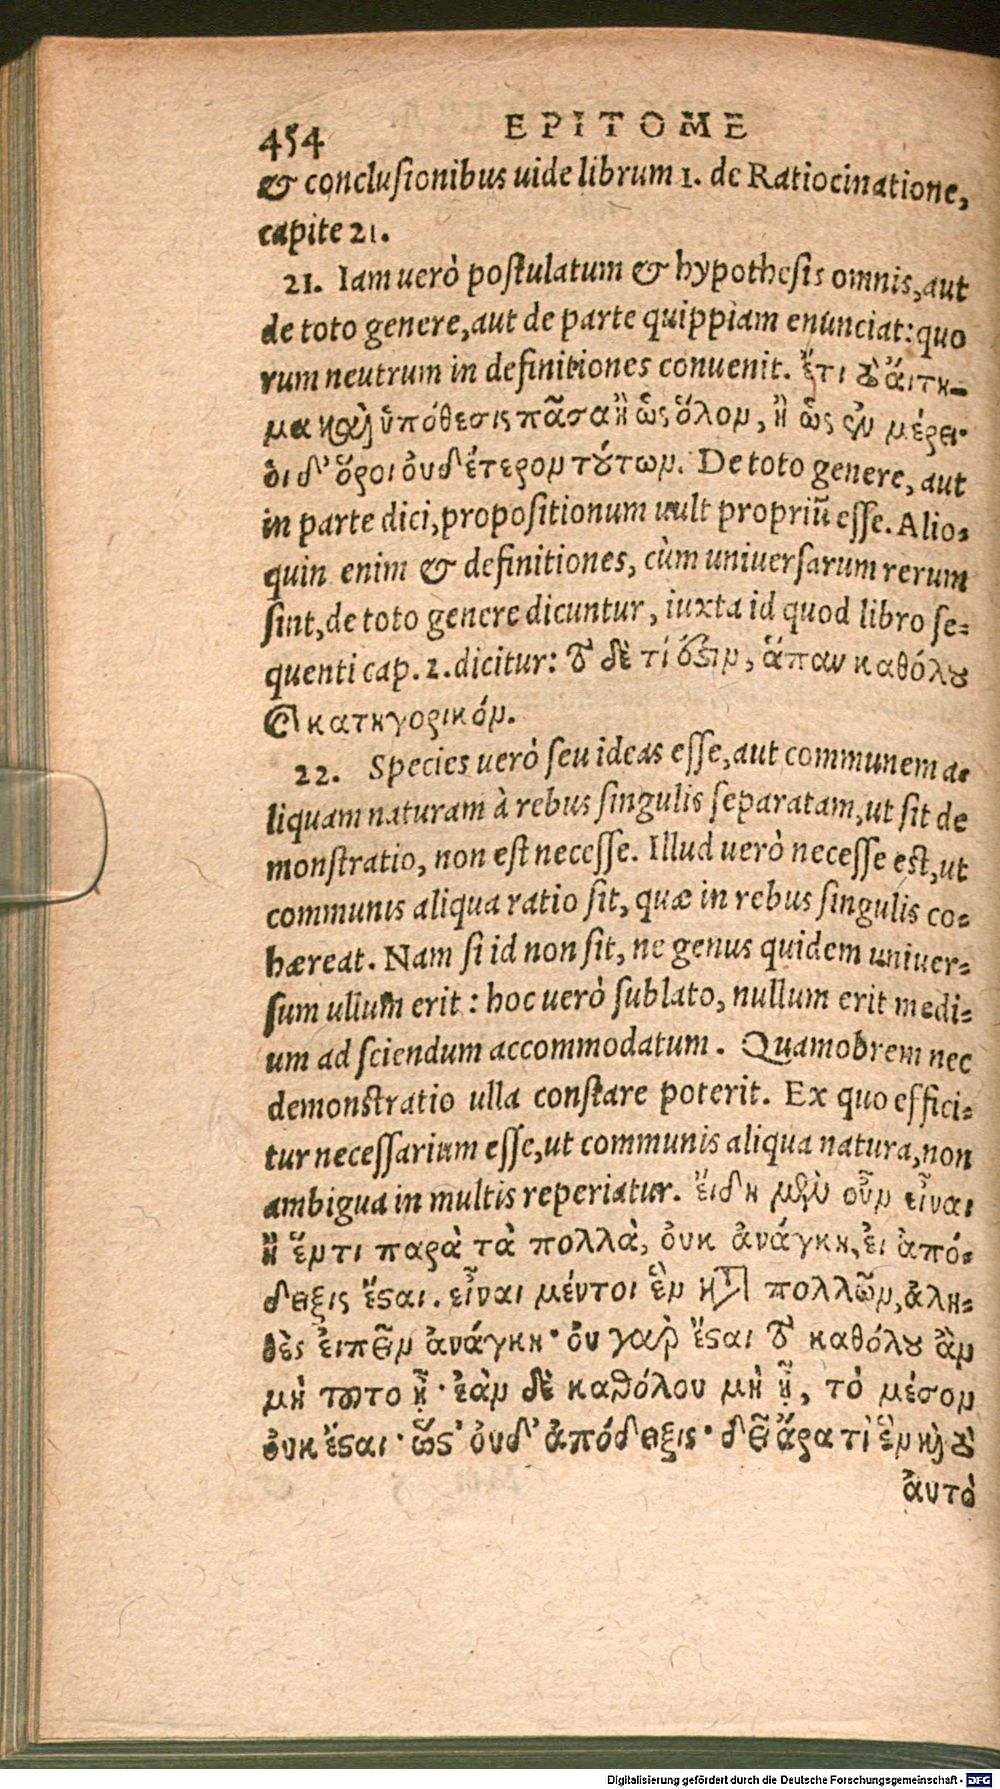 454 EPITOME
& conclusionibus uide librum 1. de Ratiocinatione,
capite 21.
21. Iam uerò postulatum & hypothesis omnis, aut
de toto genere, aut de parte quippiam enunciat: quo
rum neutrum in definitiones conuenit. ἔτι τὸ ἄιτη-
μα καὶ ὑπόθεσις πᾶσα ἢ ὡς ὅλον, ἢ ὡς ἐν μέρει·
ὁι δ' ὅροι ὀυδέτερον τούτων. De toto genere, aut
in parte dici, propositionum uult propriũ esse. Alio-
quin enim & definitiones, cùm uniuersarum rerum
sint, de toto genere dicuntur, iuxta id quod libro se-
quenti cap. 2. dicitur: τὸ δὲ τί ὅξιν, ἅπαν καθόλου
καὶ κατηγορικόν.
22. Species uerò seu ideas esse, aut communem a-
liquam naturam à rebus singulis separatam, ut sit de
monstratio, non est necesse. Illud uerò necesse est, ut
communis aliqua ratio sit, quæ in rebus singulis co-
hæreat. Nam si id non sit, ne genus quidem uniuer-
sum ullum erit: hoc uerò sublato, nullum erit medi-
um ad sciendum accommodatum. Quamobrem nec
demonstratio ulla constare poterit. Ex quo effici-
tur necessarium esse, ut communis aliqua natura, non
ambigua in multis reperiatur. ἔιδη μὲν οὖν εἶναι
ἢ ἕν τι παρὰ τὰ πολλὰ, ὀυκ ἀνάγκη, ἐι ἀπό-
δειξις ἔσται. εἶναι μέντοι ἓν κατὰ πολλῶν, ἀλη-
θὲς ἐιπεῖν ἀνάγκη· ὀυ γὰρ ἔσται τὸ καθόλου ἂν
μὴ τοῦτο ᾖ· ἐὰν δὲ καθόλου μὴ ᾖ, τὸ μέσον
ὀυκ ἔσται· ὥστ' ὀυδ' ἀπόδειξις· δεῖ ἄρα τὶ ἓν καὶ τὸ
ἀυτὸ
Digitalisierung gefördert durch die Deutsche Forschungsgemeinschaft - DFG